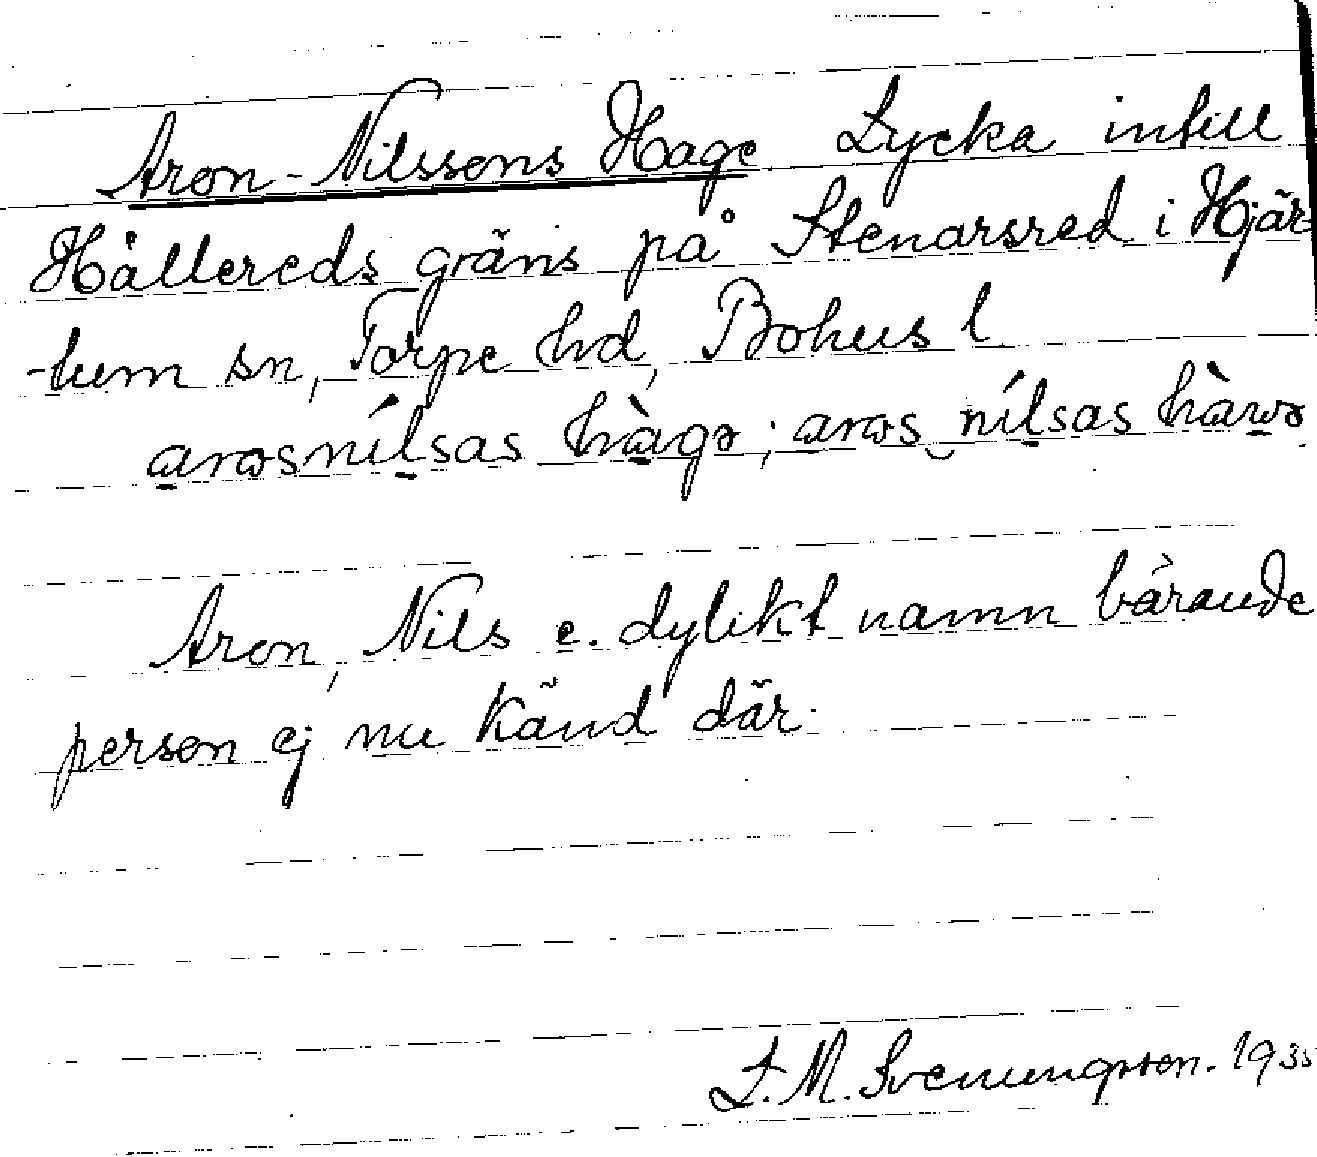 Aron-Nilssons Hage Lycka intill
Hållereds gräns på Stenarsred i Hjär-
-tum sn, Torpe hd, Bohus l
Aron, Nils e. dylikt namn bärande
person ej nu känd där.
L. M. Svenungsson. 1935